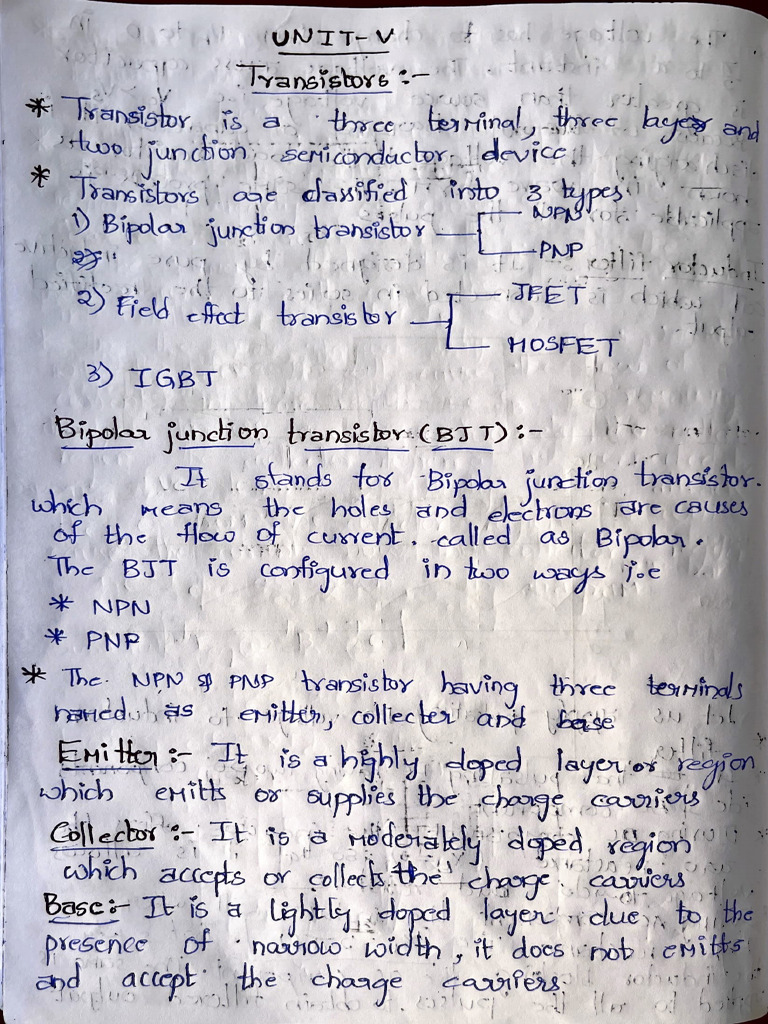 UNIT-V
Transistors :-
* Transistor is a three terminal, three layer and
two junction semiconductor device.
* Transistors are classified into 3 types.
1) Bipolar junction transistor NPN
PNP
2) Field effect transistor JFET
MOSFET
3) IGBT
Bipolar junction transistor (BJT) :-
It stands for Bipolar junction transistor.
which means the holes and electrons are causes
of the flow of current. called as Bipolar.
The BJT is configured in two ways i.e
* NPN
* PNP
* The NPN & PNP transistor having three terminals
named as emitter, collecter and base
Emitter :- It is a highly doped layer or region
which emitts or supplies the charge carriers
Collector :- It is a moderately doped region
which accepts or collects the charge carriers
Base :- It is a lightly doped layer due to the
presence of narrow width, it does not emitts
and accept the charge carriers.